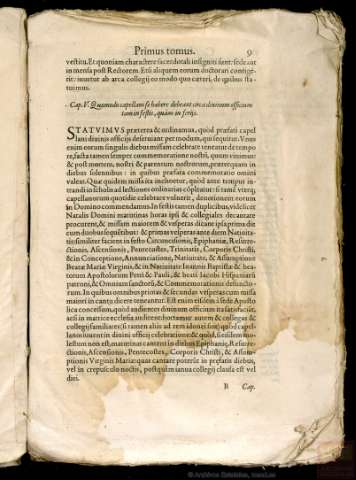 Primus tomus. 9
vestitu. Et quoniam charactere sacerdotali insigniti sunt: sedeant
in mensa post Rectorem. Et si aliquem eorum doctorari contige-
rit: iuuetur ab arca collegij eo modo quo cæteri, de quibus sta-
tuimus.
Cap. V. Quomodo capellani se habere debeant circa diuinum officium
tam in festis, quàm in ferijs.
STATVIMVS præterea & ordinamus, quòd præfati capel
lani diuinis officijs deseruiant per modum, qui sequitur. Vnus
enim eorum singulis diebus missam celebrare teneatur de tempo
re, facta tamen semper commemoratione nostri, quum vixerimus
& post mortem, nostri & parentum nostrorum, præterquam in
diebus solennibus: in quibus præfata commemoratio omitti
valeat.
trandi in scholas ad lectiones ordinarias cõpleatur: si tamē vterq;
capellanorum quotidie celebrare voluerit, deuotionem eorum
in Domino commendamus. In festis tamen duplicibus, videlicet
Natalis Domini matutinas horas ipsi & collegiales decantare
procurent, & missam maiorem & vesperas dicant ipsa prima die
cum duobus sequētibus: & primas vesperas ante diem Natiuita-
tis similiter faciant in festis Circumcisionis, Epiphaniæ, Resurre-
ctionis, Ascensionis, Pentecostes, Trinitatis, Corporis Christi,
& in Conceptione, Annunciatione, Natiuitate, & Assumptione
Beatæ Mariæ Virginis, & in Natiuitate Ioannis Baptistæ & bea-
torum Apostolorum Petri & Pauli, & beati Iacobi Hispaniarū
patroni, & Omnium sanctorū, & Commemorationis defuncto-
rum. In quibus omnibus primas & secundas vesperas cum missa
maiori in cantu dicere teneantur. Est enim eis sicut à sede Aposto
lica concessum, quòd audientes diuinum officium ita satisfaciāt,
ac si in matrice ecclesia audirent: hortamur autem & collegas &
collegij familiares; si tamen alias ad rem idonei sint, quòd capel-
lanos iuuent in diuini officij celebratione: & quòd, si eisdem mo-
lestum non est, matutinas cantent in diebus Epiphaniæ, Resurre-
ctionis, Ascensionis, Pentecostes, Corporis Christi, & Assum-
ptionis Virginis Mariæ: quas cantare poterūt in præfatis diebus,
vel in crepusculo noctis, postquàm ianua collegij clausa est vel
diei.
B Cap.